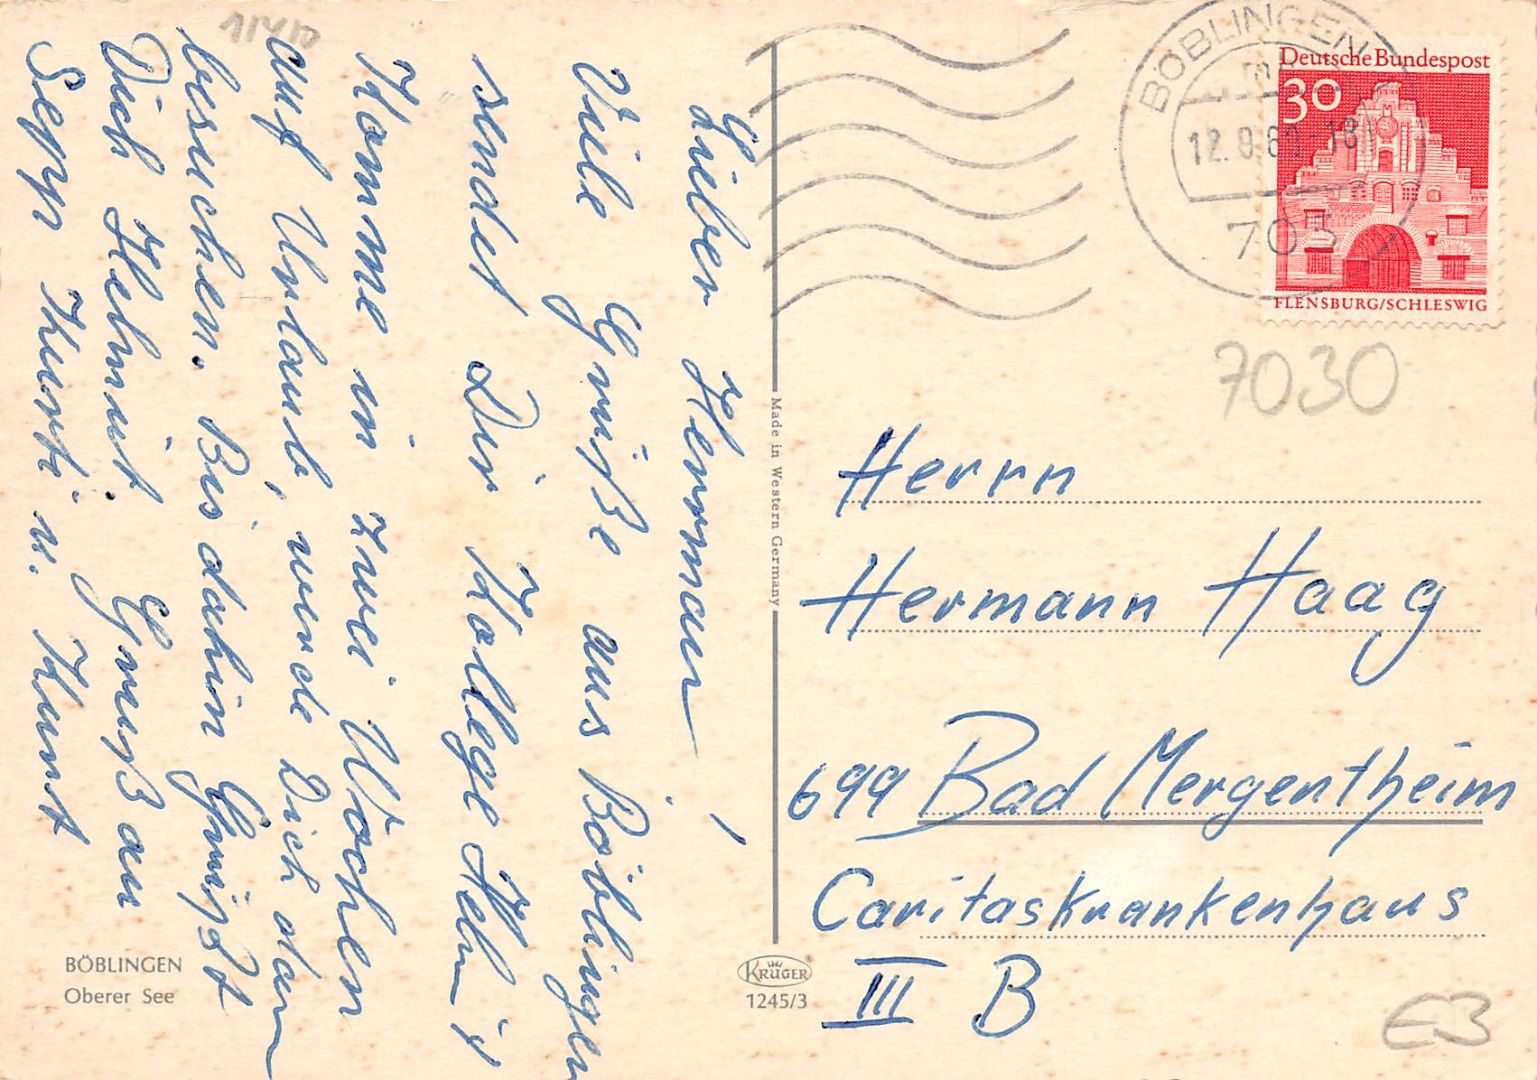 Lieber Hermann,
Viele Grüße aus Böblingen
sendet Dir Kollege Helmut
Komme in zwei Wochen
auf Urlaub, werde Dich dann
besuchen. Bis dahin Grüßt
Dich Helmut. Gruß an
Sepp Kurti u. Kunt
BÖBLINGEN
Oberer See
Made in Western Germany
KRÜGER
1245/3
BÖBLINGEN
12.9.6 -18
703
Deutsche Bundespost
30
FLENSBURG/SCHLESWIG
7030
Herrn
Hermann Haag
699 Bad Mergentheim
Caritaskrankenhaus
III B
E3